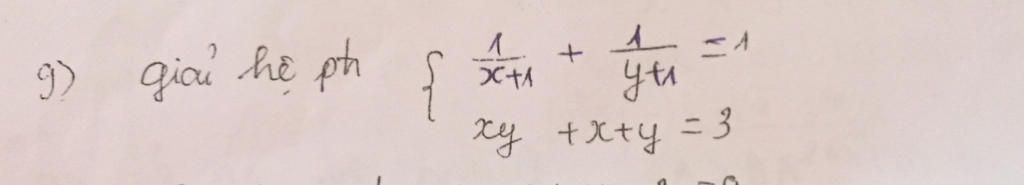 g) giải hệ ph { 1/(x+1) + 1/(y+1) = 1
xy + x + y = 3